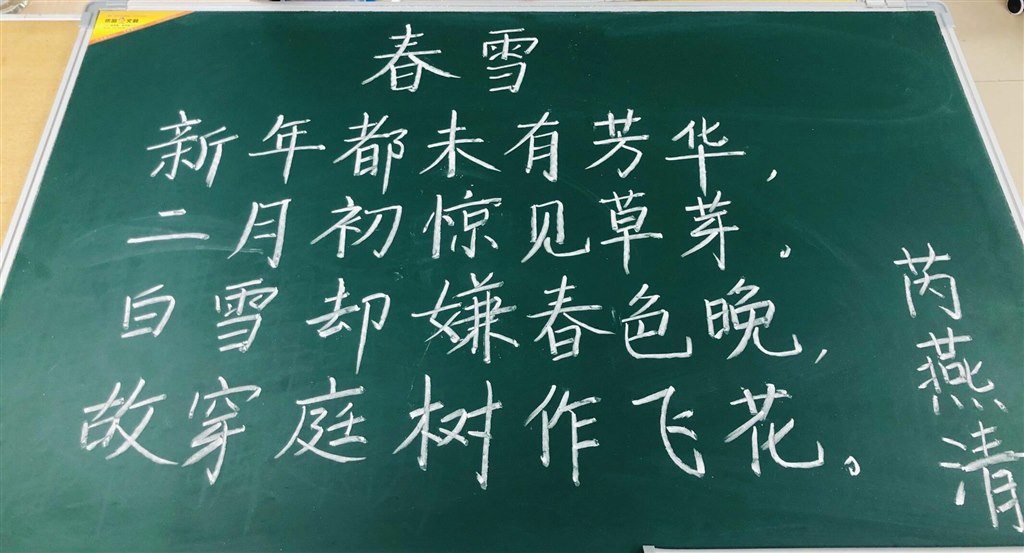 春雪
新年都未有芳华，
二月初惊见草芽。
白雪却嫌春色晚，
故穿庭树作飞花。
芮燕清